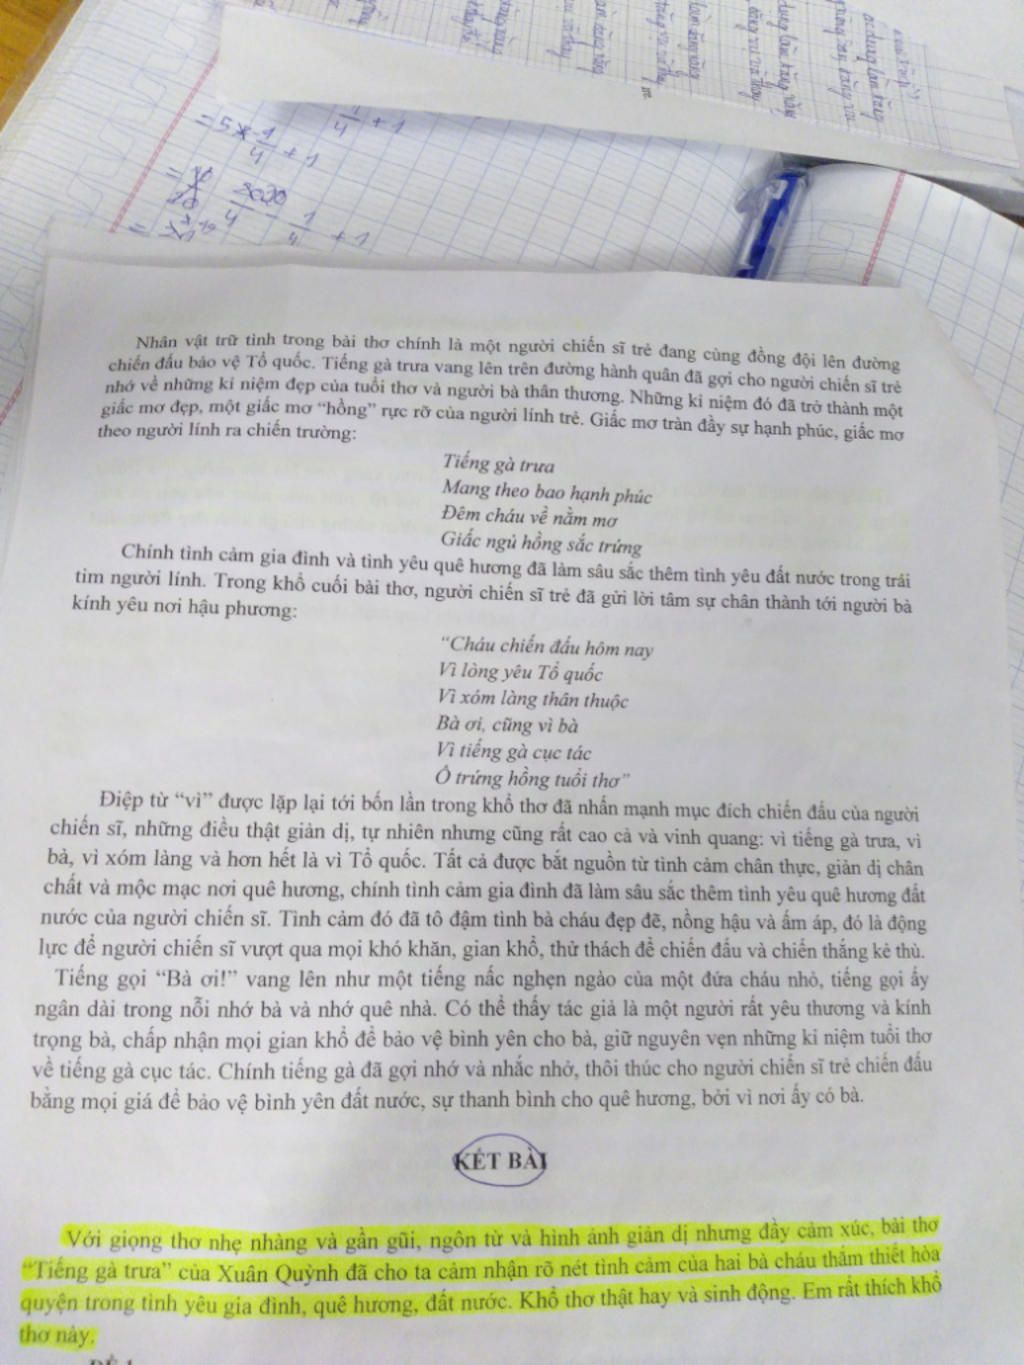 = 5 * 1/4 + 1
1/4 + 1
Nhân vật trữ tình trong bài thơ chính là một người chiến sĩ trẻ đang cùng đồng đội lên đường
chiến đấu bảo vệ Tổ quốc. Tiếng gà trưa vang lên trên đường hành quân đã gợi cho người chiến sĩ trẻ
nhớ về những kỉ niệm đẹp của tuổi thơ và người bà thân thương. Những kỉ niệm đó đã trở thành một
giấc mơ đẹp, một giấc mơ “hồng” rực rỡ của người lính trẻ. Giấc mơ tràn đầy sự hạnh phúc, giấc mơ
theo người lính ra chiến trường:
Tiếng gà trưa
Mang theo bao hạnh phúc
Đêm cháu về nằm mơ
Giấc ngủ hồng sắc trứng
Chính tình cảm gia đình và tình yêu quê hương đã làm sâu sắc thêm tình yêu đất nước trong trái
tim người lính. Trong khổ cuối bài thơ, người chiến sĩ trẻ đã gửi lời tâm sự chân thành tới người bà
kính yêu nơi hậu phương:
“Cháu chiến đấu hôm nay
Vì lòng yêu Tổ quốc
Vì xóm làng thân thuộc
Bà ơi, cũng vì bà
Vì tiếng gà cục tác
Ổ trứng hồng tuổi thơ”
Điệp từ “vì” được lặp lại tới bốn lần trong khổ thơ đã nhấn mạnh mục đích chiến đấu của người
chiến sĩ, những điều thật giản dị, tự nhiên nhưng cũng rất cao cả và vinh quang: vì tiếng gà trưa, vì
bà, vì xóm làng và hơn hết là vì Tổ quốc. Tất cả được bắt nguồn từ tình cảm chân thực, giản dị chân
chất và mộc mạc nơi quê hương, chính tình cảm gia đình đã làm sâu sắc thêm tình yêu quê hương đất
nước của người chiến sĩ. Tình cảm đó đã tô đậm tình bà cháu đẹp đẽ, nồng hậu và ấm áp, đó là động
lực để người chiến sĩ vượt qua mọi khó khăn, gian khổ, thử thách để chiến đấu và chiến thắng kẻ thù.
Tiếng gọi “Bà ơi!” vang lên như một tiếng nấc nghẹn ngào của một đứa cháu nhỏ, tiếng gọi ấy
ngân dài trong nỗi nhớ bà và nhớ quê nhà. Có thể thấy tác giả là một người rất yêu thương và kính
trọng bà, chấp nhận mọi gian khổ để bảo vệ bình yên cho bà, giữ nguyên vẹn những kỉ niệm tuổi thơ
về tiếng gà cục tác. Chính tiếng gà đã gợi nhớ và nhắc nhở, thôi thúc cho người chiến sĩ trẻ chiến đấu
bằng mọi giá để bảo vệ bình yên đất nước, sự thanh bình cho quê hương, bởi vì nơi ấy có bà.
KẾT BÀI
Với giọng thơ nhẹ nhàng và gần gũi, ngôn từ và hình ảnh giản dị nhưng đầy cảm xúc, bài thơ
“Tiếng gà trưa” của Xuân Quỳnh đã cho ta cảm nhận rõ nét tình cảm của hai bà cháu thắm thiết hòa
quyện trong tình yêu gia đình, quê hương, đất nước. Khổ thơ thật hay và sinh động. Em rất thích khổ
thơ này.